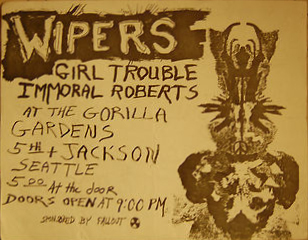 WIPERS
GIRL TROUBLE
IMMORAL ROBERTS
AT THE GORILLA
GARDENS
5TH + JACKSON
SEATTLE
5.00 At the door
DOORS OPEN AT 9:00 PM
SPONSORED BY FALLOUT